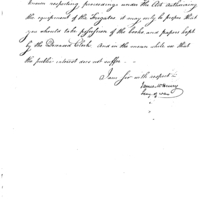 known respecting proceedings under the Act authorising
the equipment of the Frigates it may only be proper that
you should take possession of the books and papers kept
by the Deceased Clerk. And in the mean while see that
the public interest does not suffer.
I am Sir with respect
James McHenry
Secy of War